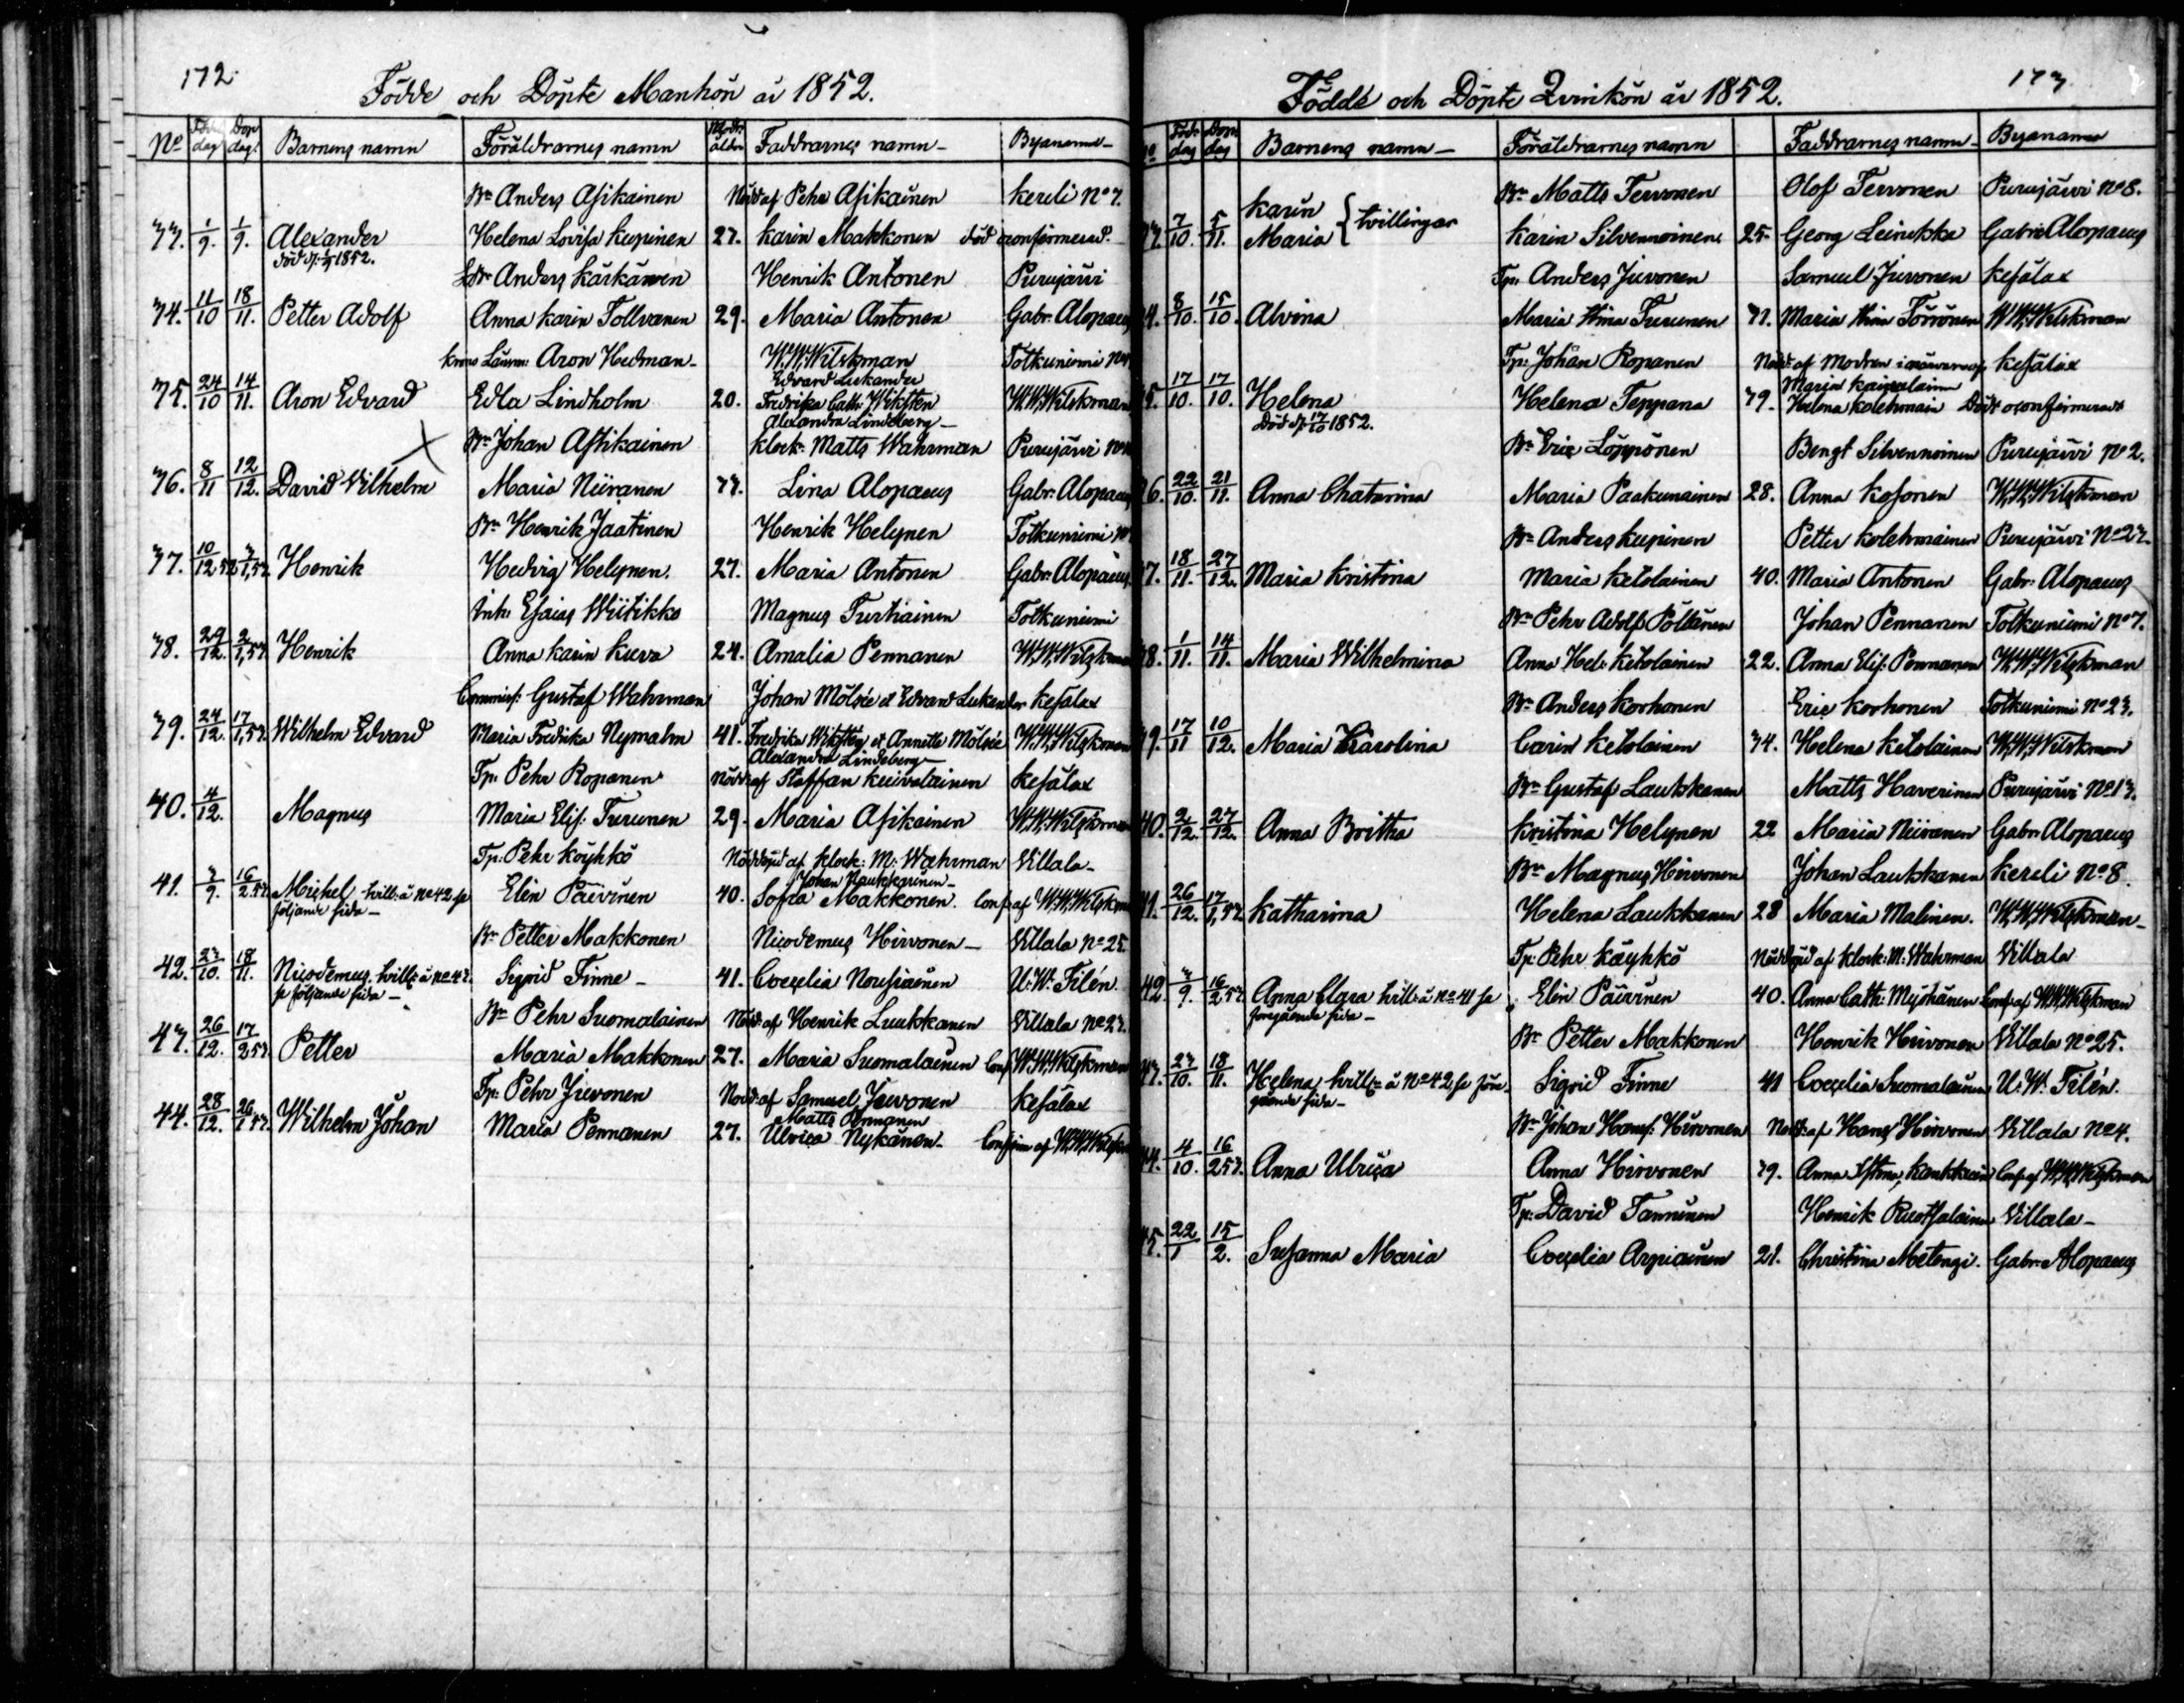 172.
Födde och Döpte Mankön år 1852.
No Föd. dag Döp. dag. Barnens namn Föräldrarnes namn Modr: ålder Faddrarnes namn Byanamn
Bn Anders Asikainen Nöddöpt af Pehr Asikainen Kereli No 7.
33. 1/9. 1/9. Alexander Helena Lovisa Kupinen 23. Karin Makkonen död oconfirmerad.
död d: 1852.
Anders Käskänen Henrik Antonen Purujärvi
34. 11/10 18/11. Petter Adolf Anna Karin Tollvanen 29. Maria Antonen Gabr. Alopaeus
Krono Länsm: Aron Hedman W.W. Wilskman Totkuniemi
Edvard Lukander
35. 24/10 14/11. Aron Edvard Edla Lindholm 20. Fredrika Cath: Wiksten W.W. Wilskman
Alexandra Lindeberg
Bn Johan Asikainen Klock: Matts Wahrman Purujärvi
36. 8/11 12/12. David Wilhelm Maria Niiranen 33. Lina Alopaeus Gabr: Alopaeus
Bn Henrik Jaatinen Henrik Helynen Totkuniemi
37. 10/12.52 3/1,53. Henrik Hedvig Helynen. 23. Maria Antonen Gabr: Alopaeus
Inh: Esaias Wiitikko Magnus Turtiainen Totkuniemi
38. 29/12. 2/1,53. Henrik Anna Karin Kuva 24. Amalia Pennanen W.W. Wilskman
Commiss: Gustaf Wahrman Johan Mölsée et Edvard Lukander Kesälax
39. 24/12. 17/1,53. Wilhelm Edvard Maria Fredika Nymalm 41. Fredrika Wiksten et Annette Mölsée W.W. Wilskman
Alexandra Lindeberg
Tp: Pehr Ropanen Nödd: af Staffan Kuivalainen Kesälax
40. 4/12. Magnus Maria Elis: Turunen 29. Maria Asikainen W.W. Wilskman
Tp: Pehr Köyhkö Nöddöpt af Klock: M: Wahrman Villala
Johan Naukkarinen
41. 3/9. 16/2.53. Mickel tvill: å No 42 se Elin Päivinen 40. Sofia Makkonen. Conf: af W.W. Wilskman
följande sida
Bn Petter Makkonen Nicodemus Hirvonen Villala No 25.
42. 23/10. 18/11. Nicodemus tvill: å No 43. Sigrid Finne 41. Coecelia Nousiainen U: W. Tilén
se följande sida
Bn Pehr Suomalainen Nödd: af Henrik Luukkanen Villala No 23.
43. 26/12. 17/2 53. Petter Maria Makkonen 23. Maria Suomalainen Conf W.W. Wilskman
Tp: Pehr Juvonen Nödd: af Samuel Juvonen Kesälax
Matts Pennanen
44. 28/12. 26/1 53. Wilhelm Johan Maria Pennanen 23. Ulrica Nykänen. Confirm af W.W. Wilskman
173
Födde och Döpte Qvinkön år 1852.
Föd. dag Döp. dag Barnens namn Föräldrarnes namn Faddrarnes namn Byanamn
Karin Bn Matts Tervonen Olof Tervonen Purujärvi No 8.
7/10. 5/11. Maria { tvillingar Karin Silvennoinen 25. Georg Leinikka Gabriel Alopaeus
Tp: Anders Juvonen Samuel Juvonen Kesälax
8/10. 15/10. Alvina Maria Stina Turunen 31. Maria Stina Törrönen W.W. Wilskman
Tp: Johan Ropanen Nödd: af Modren Kesälax
17/10. 17/10. Helena Helena Teppana 39. Helena Kolehmain Död oconfirmerad
Död d: 17/10 1852.
Bn Eric Löppönen Bengt Silvennoinen Purujärvi No 2.
22/10. 21/11. Anna Chatarina Maria Paakunainen 28. Anna Kosonen W.W. Wilskman
Bn Anders Kupinen Petter Kolehmainen Purujärvi No 23.
18/11. 27/12. Maria Kristina Maria Ketolainen 40. Maria Antonen Gabr: Alopaeus
Bn Pehr Adolf Pöllänen Johan Pennanen Totkuniemi No 7.
1/11. 14/11. Maria Wilhelmina Anna Hel: Ketolainen 22. Anna Elis: Pennanen W.W. Wilskman
Bn Anders Korhonen Eric Korhonen Totkuniemi No 23.
17/11 10/12. Maria Karolina Carin Ketolainen 34. Helena Ketolainen W.W. Wilskman
Bn Gustaf Laukkanen Matts Haverinen Purujärvi No 13.
40. 2/12. 27/12. Anna Britha Kristina Helynen 22 Maria Niiranen Gabr Alopaeus
Bn Magnus Hirvonen Johan Laukkanen Kereli No 8.
41. 26/12. 17/1,53. Katharina Helena Laukkanen 28 Maria Malinen. W.W. Wilskman
Tp: Pehr Käyhkö Nöddöpt af Klock: M: Wahrman Villala
42. 3/9. 16/2.53. Anna Clara tvill: å No 41 se Elin Päivinen 40. Anna Cath: Myöhänen Conf: af W.W. Wilskman
foregående sida
Bn Petter Makkonen Henrik Hirvonen Villala No 25.
43. 23/10. 18/11. Helena tvill: å No 42 se före Sigrid Finne 41 Coecelia Suomalainen U: W. Tilén.
gående sida
Bn Johan Hans: Hirvonen Nödd: af Hans Hirvonen Villala No 4.
44. 4/10. 16/2 53. Anna Ulrica Anna Hirvonen 39. Anna Conf. af W.W. Wilskman
Tp: David Tanninen Henrik Villala
45. 22/1 15/2. Susanna Maria Coecelia Arpiainen 21. Christina Gabr: Alopaeus